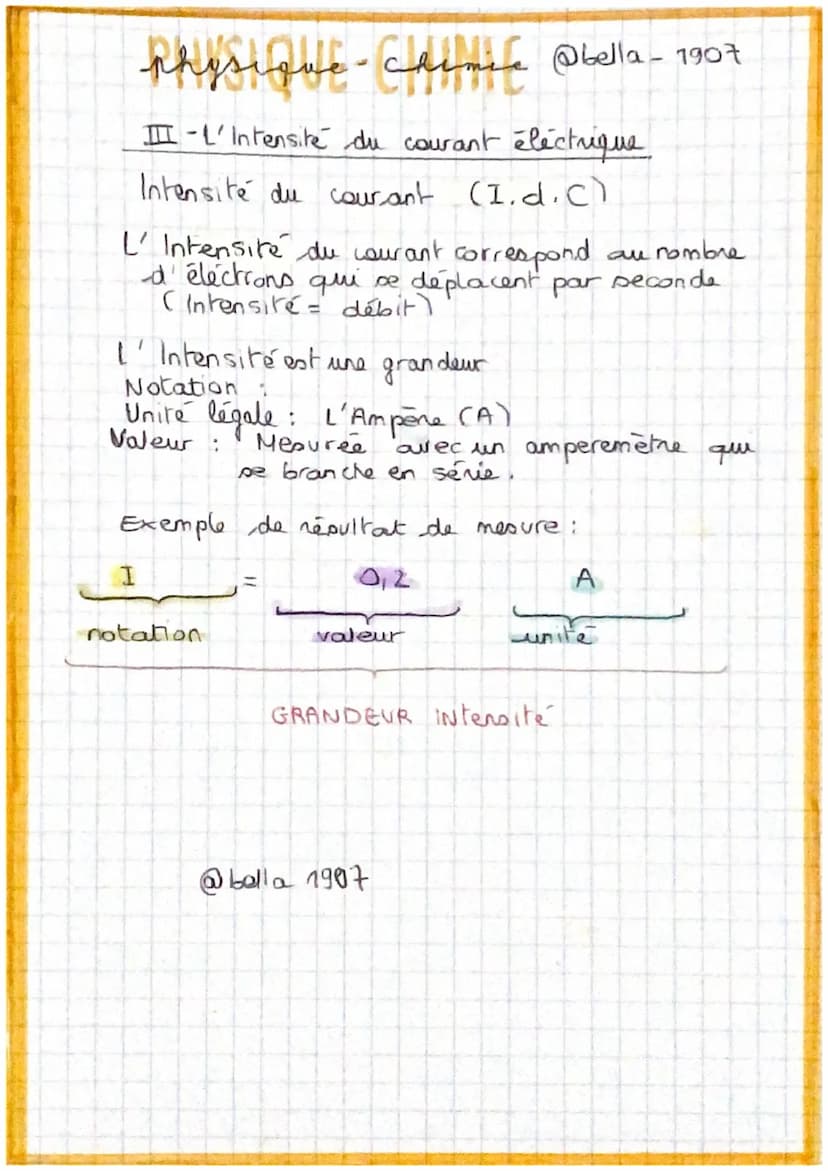 PHYSIQUE-CHIMIE
physique-chimie @bella-1907
III-L'Intensité du courant éléctrique
Intensité du courant (I.d.C)
L'Intensité du courant correspond au nombre
d'éléctrons qui se déplacent par seconde
(Intensité = débit)
L'Intensité est une grandeur
Notation :
Unité légale : L'Ampère (A)
Valeur : Mesurée avec un amperemètre qui
se branche en série.
Exemple de résultat de mesure :
I = 0,2 A
notation valeur unité
GRANDEUR intensité
@bella 1907